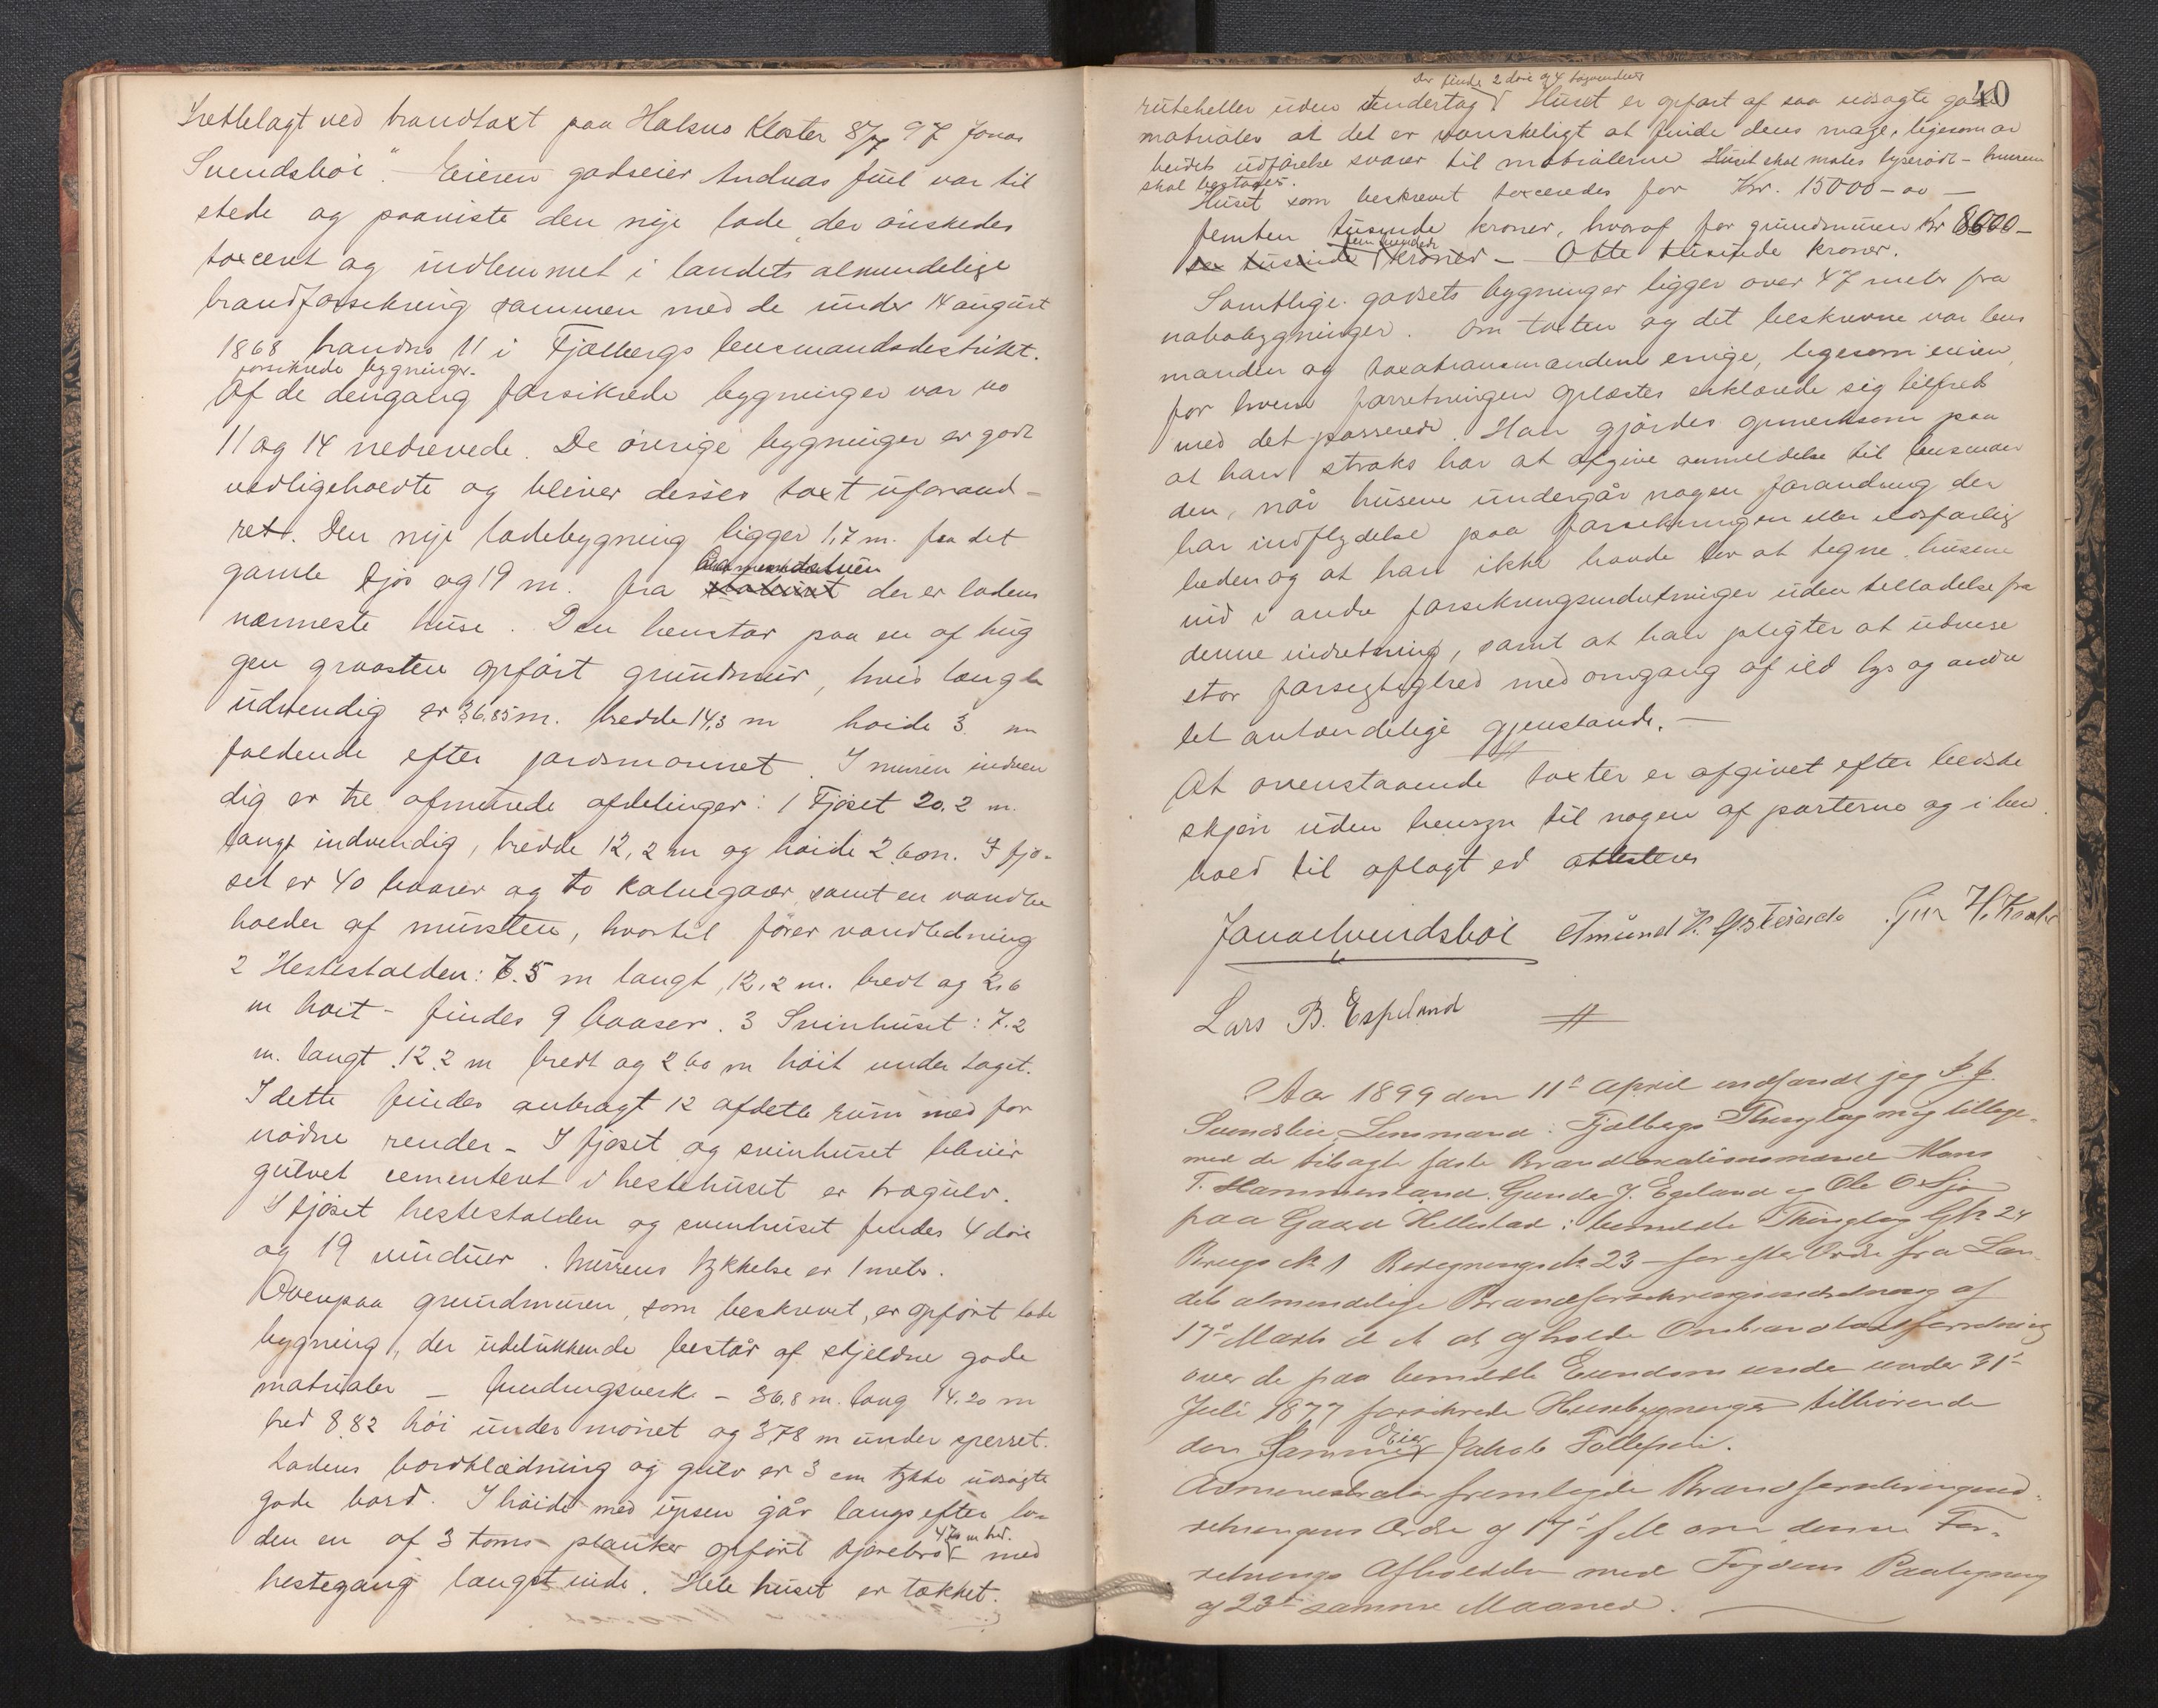 Fretbelagt ved brandtaxt paa Halsnø Kloster 8/7 97 Jonas
Svendsbøi". Eieren godseier Andreas Juel var til
stede og paaviste den nye lade der ønskedes
taxceret og indlemmet i landets almindelige
brandforsikring sammen med de under 14 august
1868 brandno 11 i Fjælbergs lensmandsdistrikt.
forsikrede bygninger.
Af de dengang forsikrede bygninger var no
11 og 14 nedrevede. De øvrige bygninger er godt
vedligeholdte og bliver disses taxt uforand-
ret. Den nye ladebygning ligger 1,7 m. fra det
gamle fjøs og 19 m. fra stalhuset der er ladens
nærmeste huse. Den henstar paa en af hug
gen graasten opført grundmur, hvis længde
udvendig er 36.85 m. bredde 14,3 m høide 3 m
faldende efter jordsmonnet. I muren indven
dig er tre afmurede afdelinger: 1 Fjøset 20.2 m.
langt indvendig, bredde 12,2 m og høide 2.60m. I fjø-
set er 40 baaser og to kalvegaar, samt en vandbe
holder af mursten, hvortil fører vandledning
2 Hestestalden: 6.5 m langt, 12,2 m. bredt og 2,6
m høit - findes 9 baaser. 3 Svinhuset: 7.2
m. langt 12.2 m bredt og 2.60 m høit under taget.
I dette findes anbragt 12 afdelte rum med for
nødne render - I fjøset og svinhuset bliver
gulvet cementeret i hestehuset er trægulv.
I fjøset hestestalden og svinhuset findes 4 døre
og 19 vinduer. Murens tykkelse er 1 meter.
Ovenpaa grundmuren, som beskrevet, er opført lade
bygning, der udelukkende består af skjeldne gode
matrialer - bindingsverk - 36,8 m. lang 14.20 m
bred 8.82 høi under mønet og 3.78 m under sperret.
Ladens bordklædning og gulv er 3 cm tykke udsøgte
gode bord. I høide med upsen går langs efter la-
den en af 3 toms planker opført kjørebro 4.70 m bred. med
hestegang langst inde. Hele huset er tækket.
40
Der findes 2 døre og 4 tagvinduer
rutheller uden undertag Huset er opført af saa udsøgte gode
matrialer at det er vanskeligt at finde dens mage, ligesom ar
beidets udførelse svarer til matrialerne Huset skal males lyserødt - murene
skal kostades.
Huset som beskrevet taxceredes for Kr. 15000-00 —
femten tusinde kroner, hvoraf for grundmuren Kr 8000-
sex tusinde fem hundrede kroner - Otte tusinde kroner.
Samtlige godsets bygninger ligger over 47 meter fra
nabobygninger. Om taxten og det beskrevne var lens
manden og taxationsmændene enige, ligesom eieren
for hvem forretningen oplæstes erklærede sig tilfreds
med det passerede. Han gjørdes opmerksom paa
at han straks har at afgive anmeldelse til lensman
den, når husene undergår nogen forandring der
har indflydelse paa forsikringen eller ildsfarlig
heden og at han ikke havde lov at tegne husene
ind i andre forsikringsindretninger uden tilladelse fra
denne indretning, samt at han pligter at udvise
stor forsigtighed med omgang af ild lys og andre
let antændelige gjenstande. —
At ovenstaaende taxter er afgivet efter bedste
skjøn uden hensyn til nogen af parterne og i hen
hold til aflagt ed attesteres
Jonas Svendsbøi Amund H. Østeraade
Lars B. Espeland
Aar 1899 den 11te April indfandt jeg
Svendsbøi, Lensmand i Fjælbergs Thinglag mig tillige-
med de tilsagte faste Brandtaxationsmænd Mons
T. Hammersland, Gunder J. Egeland og Ole Oxsjø
paa Gaard Hellestad i bemeldte Thinglag Gn 24
Brugs No 1 Beregnings No 23 for efter Ordre fra Lan-
dets almindelige Brandforsikringsindretning af
17de Marts d. A. at afholde Ombrandtaxtforretning
over de paa bemeldte Eiendom under 31te
Juli 1877 forsikrede Husebygninger tilhørende
den Eier Jakob Tollefsen.
Administrator fremlagde Brandforsikringsind-
retningens Ordre af 17de f. M. om denne For-
retnings Afholdelse med Fogdens Paategning
af 23de samme Maaned.